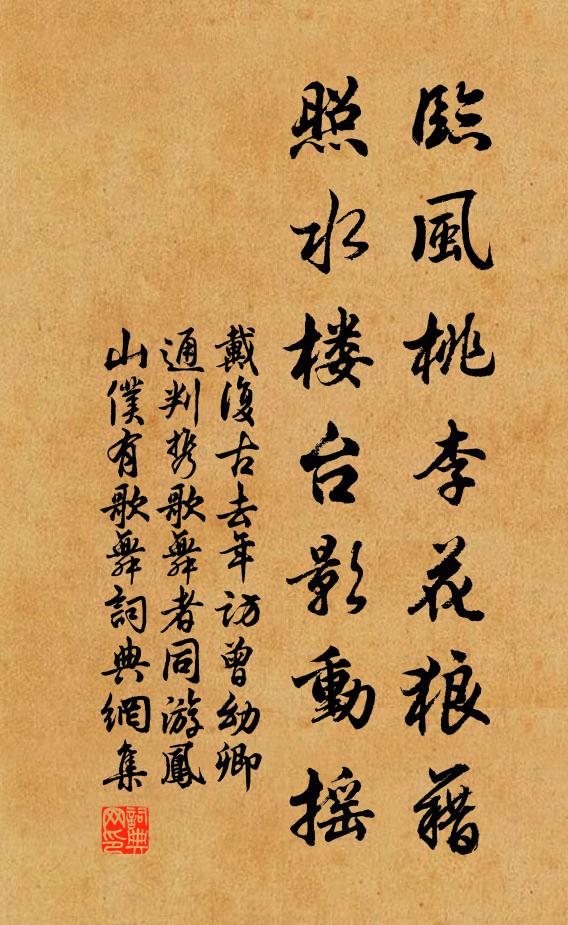 臨風桃李花狼藉
照水楼台影動摇
戴復古去年訪曾幼卿
通判携歌舞者同游鳳
山僕有歌舞詞典網集
詞典
网印